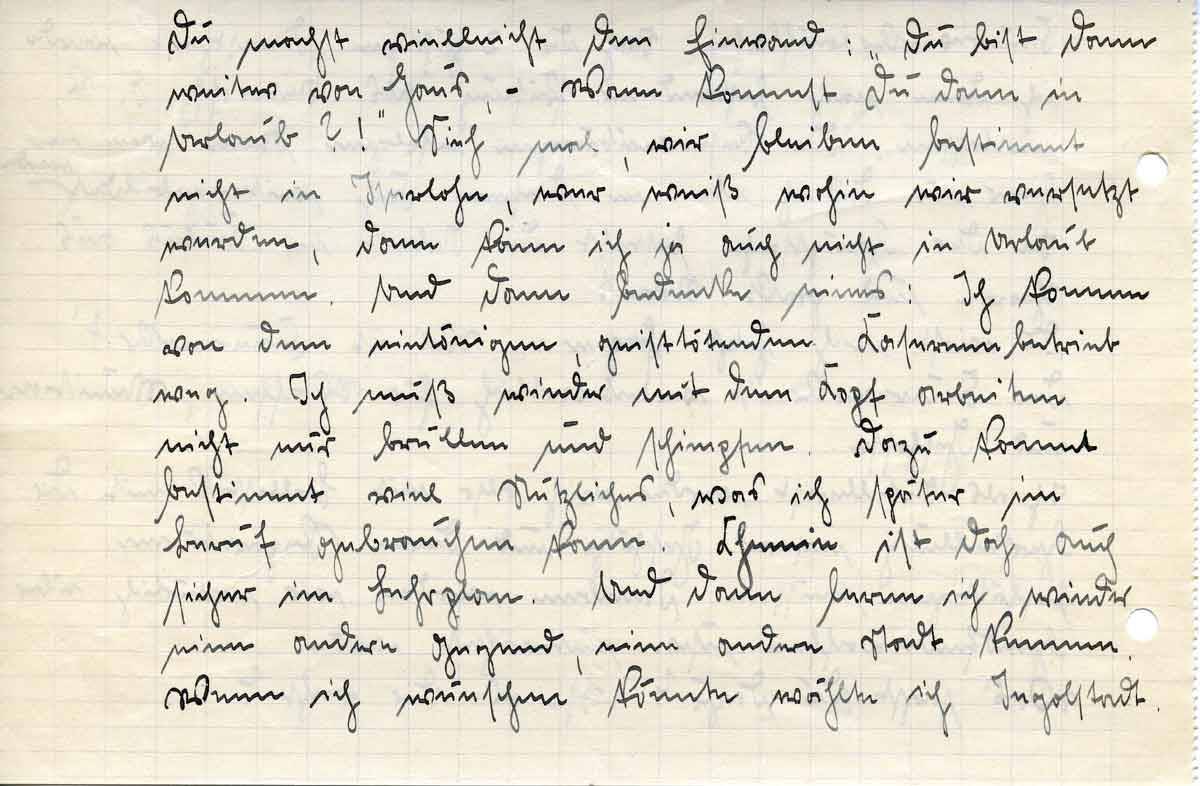 Du machst vielleicht den Einwand: „Du bist dann
weiter von Haus, – Wann kommst Du dann in
Urlaub?!" Sieh mal, wir bleiben bestimmt
nicht in Iserlohn, wer weiß wohin wir versetzt
werden, dann kann ich ja auch nicht in Urlaub
kommen. Und dann bedenke eines: Ich komme
von dem eintönigen, geisttötenden Kasernenbetrieb
weg. Ich muß wieder mit dem Kopf arbeiten
nicht nur brüllen und schimpfen. Dazu kommt
bestimmt viel Nützliches, was ich später im
Beruf gebrauchen kann. Chemie ist doch auch
sicher im Lehrplan. Und dann lerne ich wieder
eine andere Gegend, eine andere Stadt kennen.
Wenn ich wünschen könnte wählte ich Ingolstadt.